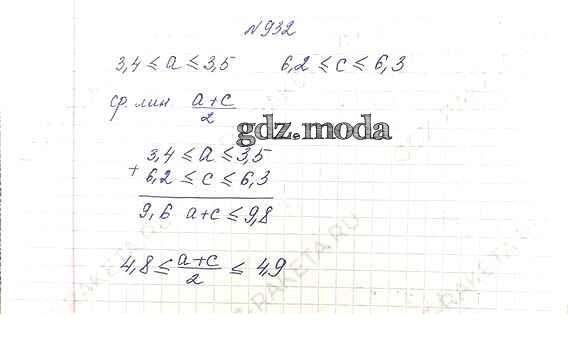 №932
3,4 ≤ a ≤ 3,5 6,2 ≤ c ≤ 6,3
ср. лин a+c/2
gdz.moda
3,4 ≤ a ≤ 3,5
+ 6,2 ≤ c ≤ 6,3
9,6 a+c ≤ 9,8
4,8 ≤ a+c/2 ≤ 4,9